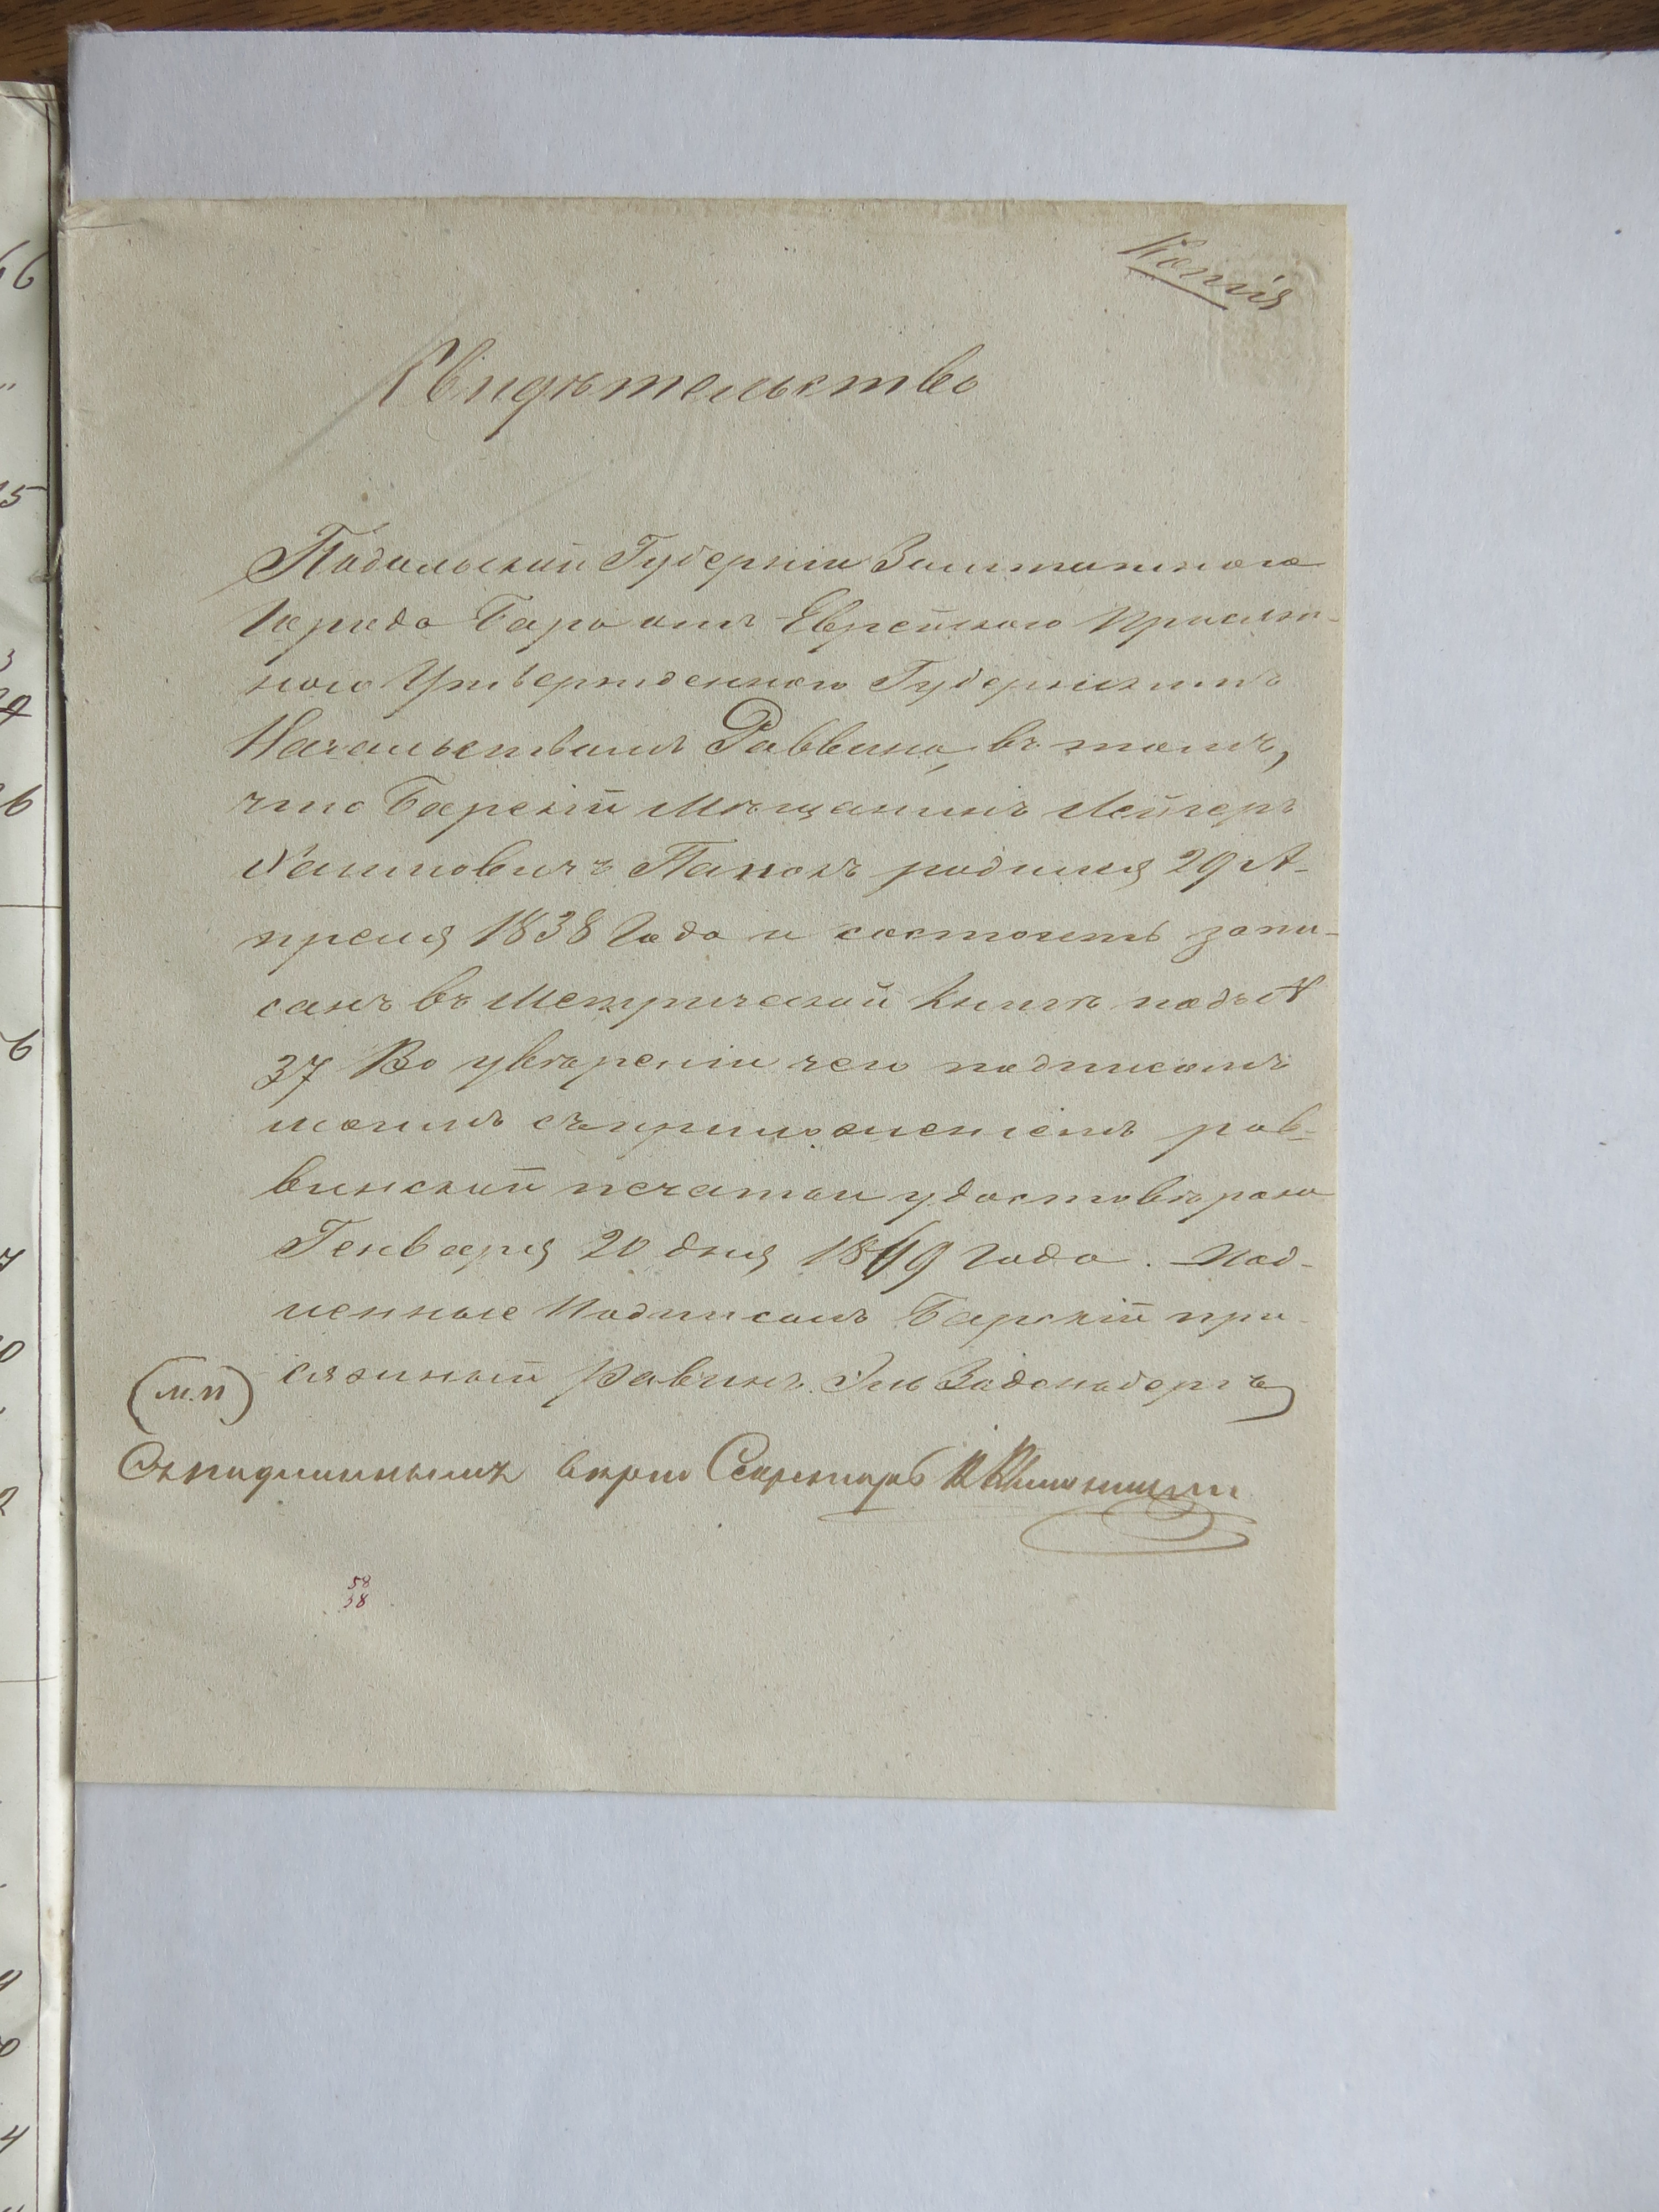 Копія
Свидѣтельство
Подольской Губерніи Заштатного
Города Бара отъ Еврейского Присяж-
ного Утвержденного Губернскимъ
Начальствомъ Раввина, въ томъ,
что Барскій Мѣщанинъ Лейзеръ
Хаимовичъ Папокъ родился 29 А-
преля 1838 Года и состоитъ запи-
санъ въ Метрической Книгѣ подъ №
37 Во увѣреніи чего подписомъ
моимъ съ приложеніемъ рав-
винской печатки удостовѣряю
Генваря 20 дня 1869 Года. Под-
ленные Подписалъ Барскій при-
сяжный Равинъ
(М.П)
Съ подлиннымъ вѣрно Секретарь
58
38
66
15